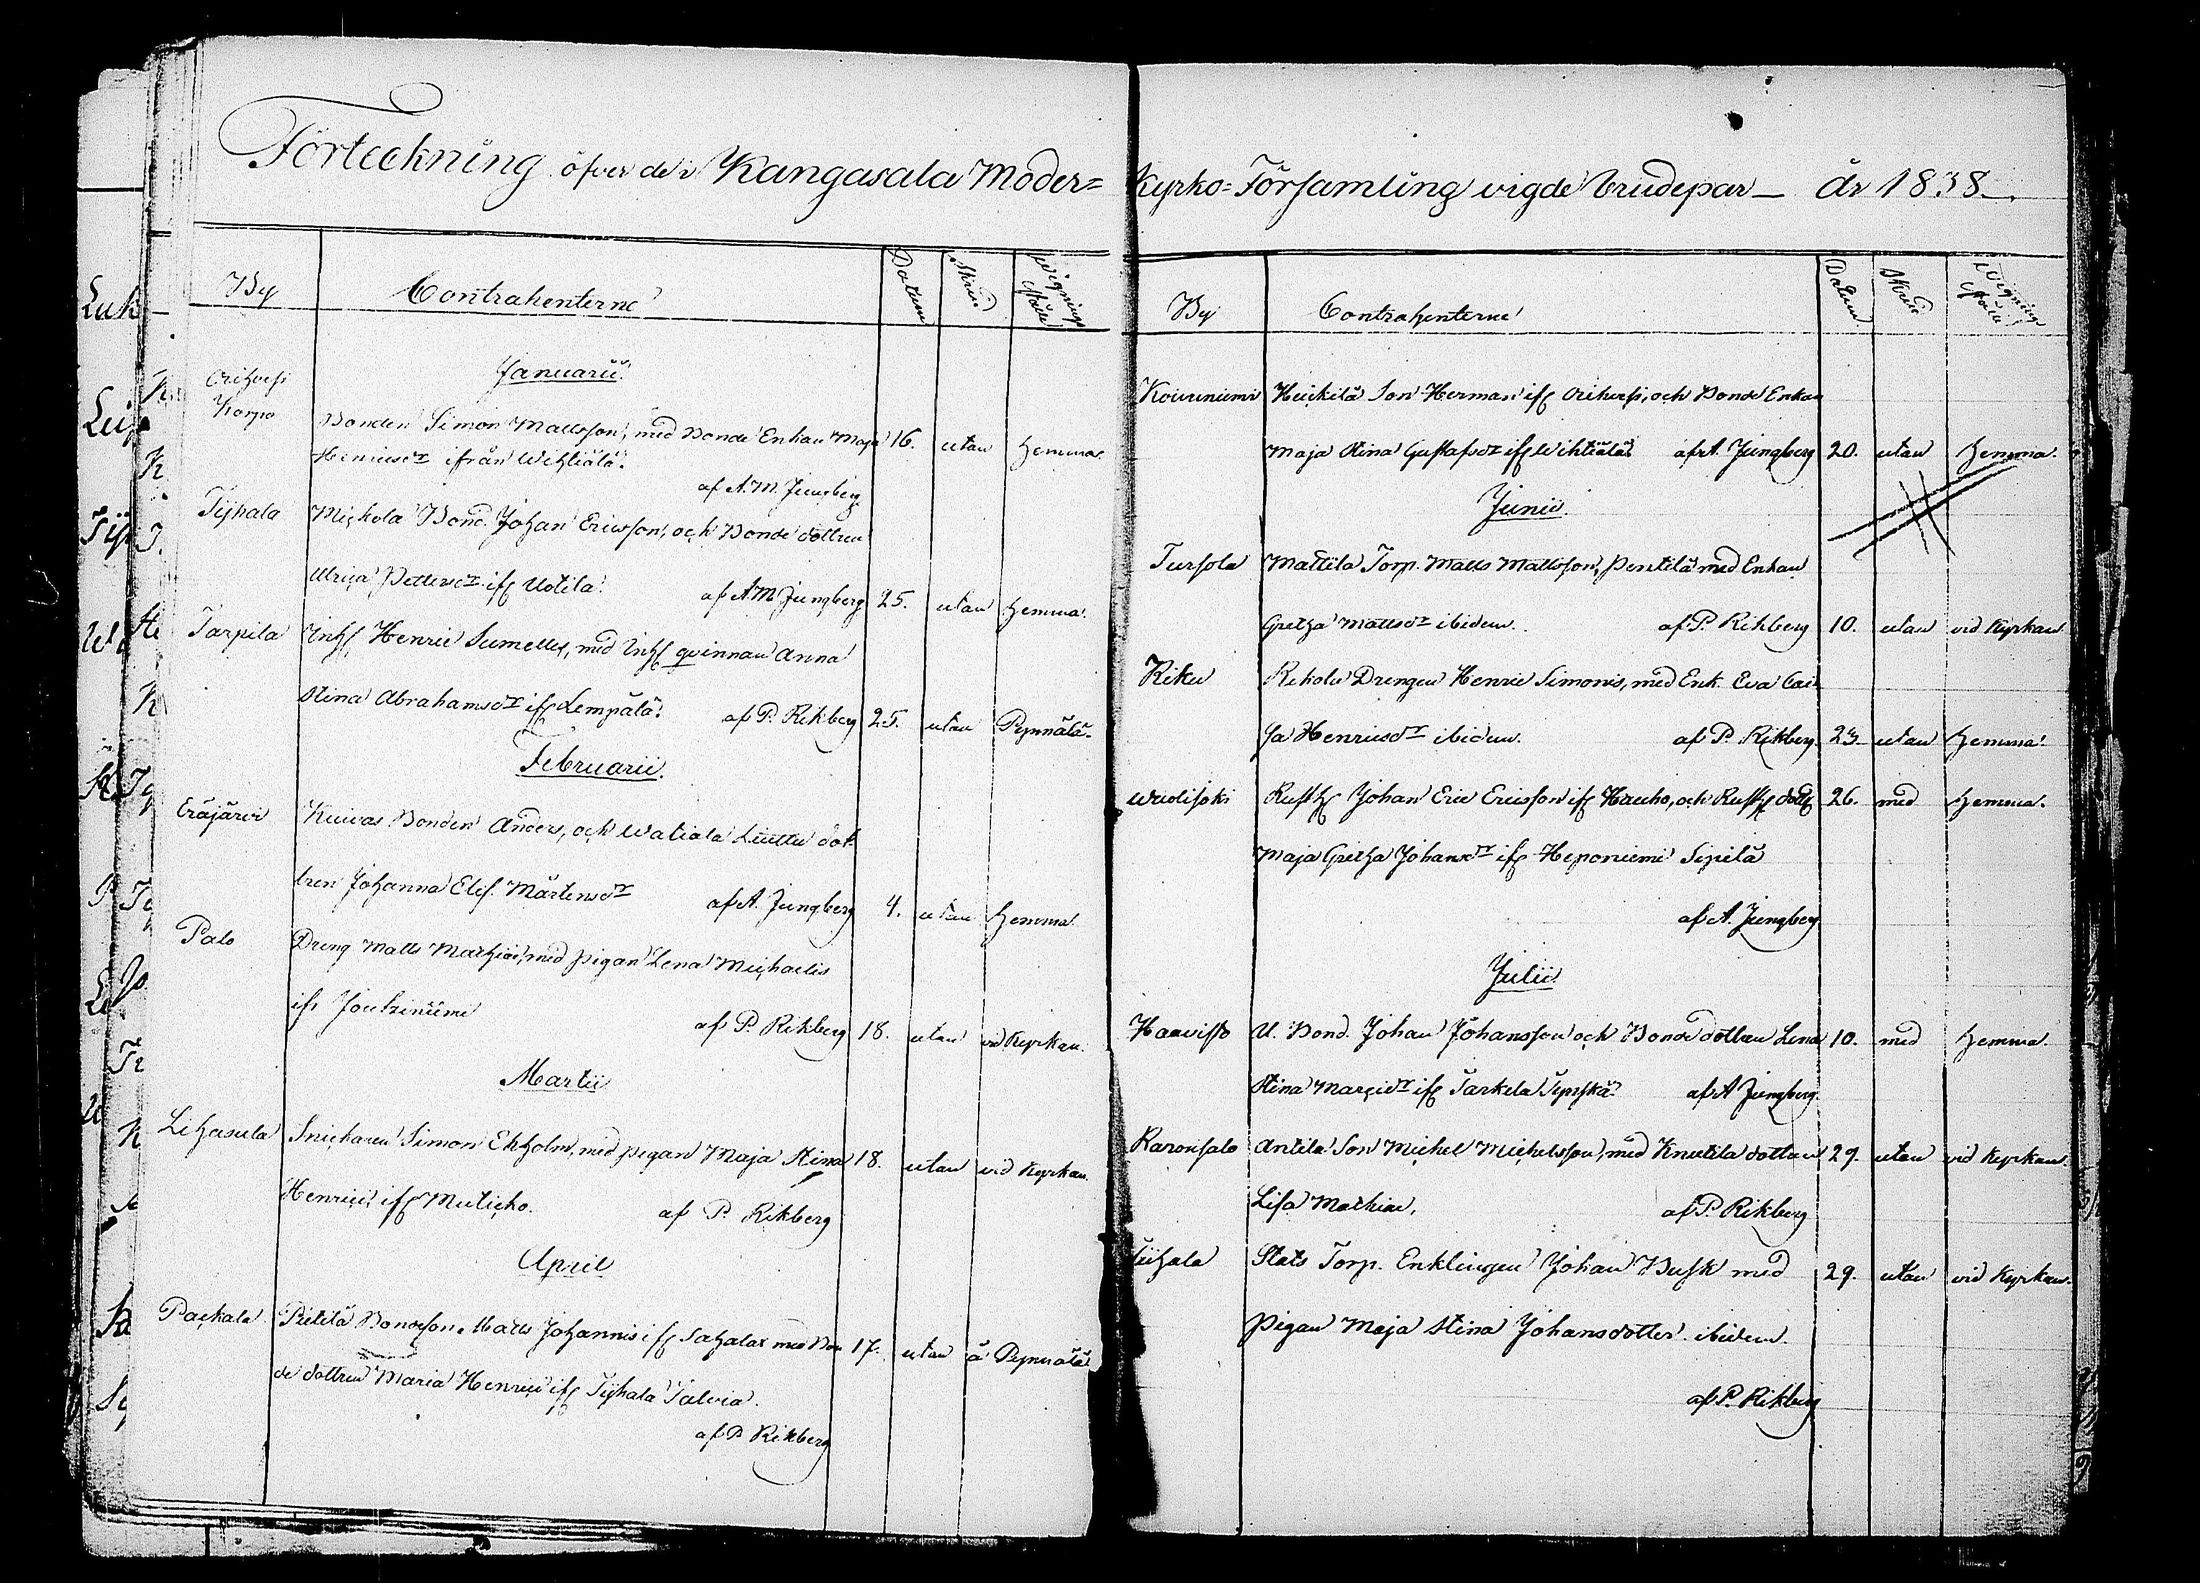 Förteckning öfver de i Kangasala Moder=
By Contrahenterne Datum Skrud Vignings ställe
Januarii
Orihvesi
Korpo
Bonden Simon Mattsson, med Bonde Enkan Maja 16. utan hemma.
Henricsdr ifrån Wihtiälä.
af A. M. Jungberg
Tijhala Mickola Bond. Johan Ericsson, och Bonde dottren
Ulrica Pettersdr ifr Uotila. af A M Jungberg 25. utan hemma.
Tarpila Inhs Henric Sumelles, med Inhs qvinnan Anna
Stina Abrahamsdr ifr Lempälä. af P. Rikberg 25. utan Pynnälä.
Februarii.
Eräjärvi Kuivas Bonden Anders, och Watiala Liuttu dot
tren Johanna Elis. Mårtensdr af A. Jungberg 4. utan hemma
Palo Dreng Matts Mathiæ, med pigan Lena Michaelis
ifr Joutsiniemi af P. Rikberg 18. utan vid Kyrkan.
Martii
Lihasula Snickaren Simon Ekholm, med pigan Maja Stina 18. utan vid Kyrkan.
Henrici, ifr Muticko. af P. Rikberg
April
Packala Pietilä Bondeson Matts Johannis ifr Sahalax med Bon 17. utan å Pynnälä
de dottren Maria Henrici ifr Tijhala Talvia.
af P Rikberg
Kyrko=Församling vigde brudepar år 1838.
By Contrahenterne Datum Skrud Vignings ställe
Kouriniemi Heickilä Son Herman ifr Orihvesi, och Bonde Enkan
Maja Stina Gustafsdr ifr Wihtiälä. af A. Jungberg 20. utan hemma.
Junii.
Tursola Mattila Torp. Matts Mattsson, Pentilä med Enkan
Gretha Mattsdr ibidem. af P. Rikberg 10. utan vid Kyrkan
Riku Rekola Drengen Henric Simonis, med Enk. Eva Cai
sa Henricsdr ibidem. af P. Rikberg 23 utan hemma.
Wuolijoki Rusth Johan Eric Ericsson ifr Hauho, och Rusth dottr 26. med hemma.
Maja Gretha Johansdr ifr Heponiemi Sipilä
af A. Jungberg
Julii
Haavisto U. Bond. Johan Johansson och Bonde dottren Lena 10. med hemma.
Stina Marcidr ifr Sarkela Syrjkä. af A Jungberg.
Raronsalo Antila Son Michel Michelsson, med Knutila dottren 29. utan vid Kyrkan.
Lisa Mathiæ, af P. Rikberg
Tiihala Stats Torp. Enklingen Johan Busk med 29. utan vid Kyrkan.
Pigan Maja Stina Johansdotter ibidem.
af P. Rikberg